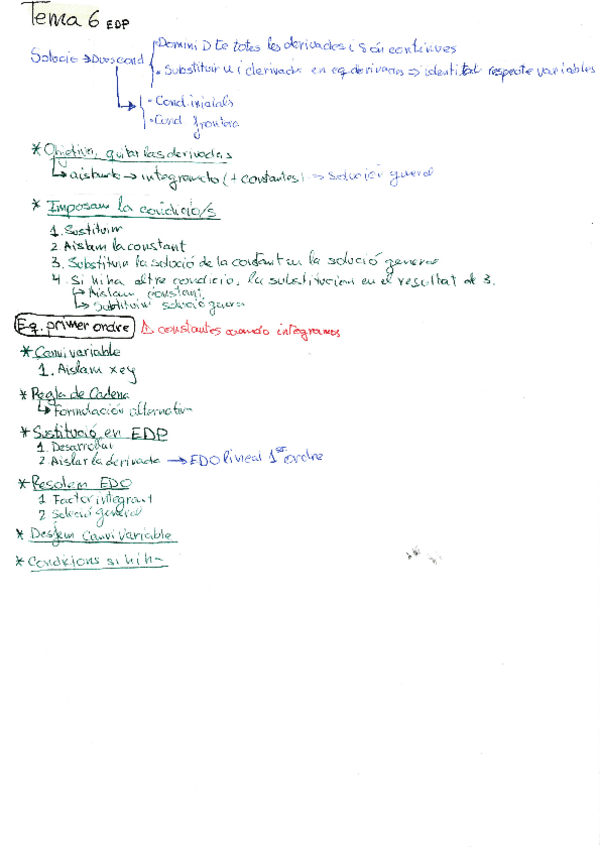 Tema 6 EDP
Domini D te totes les derivades i són contínues
Solució → D
• Substituir u i derivada en eq derivades ⇒ identitat respecte variables
- Cond. inicials
- Cond frontera
* Objetivo, quitar las derivadas
↳ aislant → integrando (+ constantes) ⇒ solución general
* Imposam la condició/s
1. Sustituim
2 Aislam la constant
3. Substituim la solució de la constant en la solució general
4. Si hi ha altre condicio, la substitucion en el resultat de 3.
↳ Aislam constant
↳ Substituim solució general
Eq. primer ordre ⚠ constantes cuando integramos
* Canvi variable
1. Aislam x e y
* Regla de Cadena
↳ Formulación alternativa
* Sustitució en EDP
1. Desarrollar
2 Aislar la derivada → EDO lineal 1er ordre
* Resolem EDO
1 Factor integrant
2 Solució general
* Desfem Canvi Variable
* Condicions si hi ha